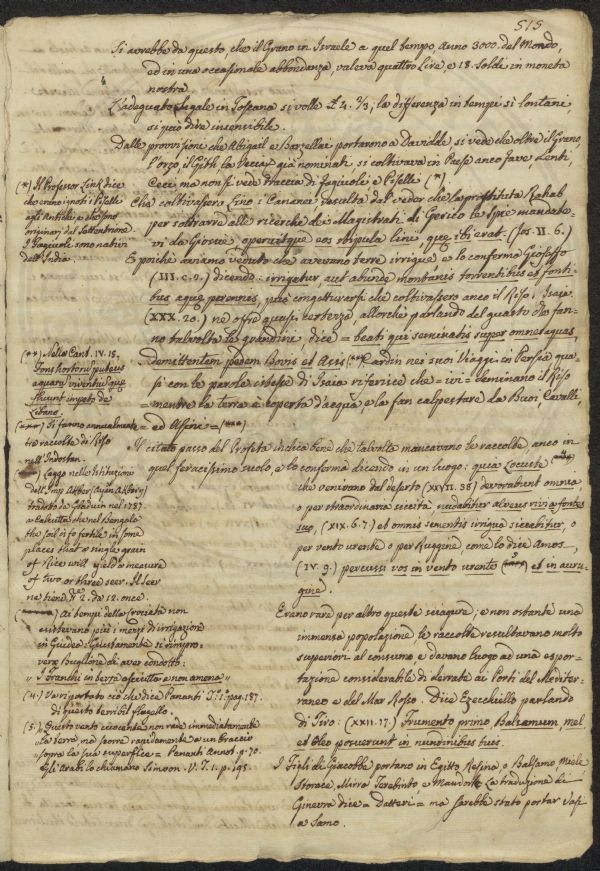 515
Si avrebbe da questo, che il Grano in Israele a quel tempo, anno 3000. del Mondo,
ed in una occasionale abbondanza, valeva quattro Lire e 18. Soldi in moneta
nostra.
L'adeguato Legale in Toscana si volle £ 4. 2/3; la differenza in tempi sì lontani
si può dire insensibile.
Dalle provvisioni che Abigail e Barzellai portarono a Davidde, si vede che oltre il Grano,
l'orzo, il Gith, la Vecca già nominati si coltivava in Paese anco fave, Lenti,
Ceci ma non si vede traccia di fagiuoli e Piselli (*)
Che coltivassero Lino i Cananei resulta dal veder che la prostituta Rahab
per sottrarre alle ricerche dei Magistrati di Gerico le Spie mandate-
vi da Giosuè, operuitque eos stipula lini, quae ibi erat (Jos. II. 6.)
E poiché abbiamo veduto che avevano terre irrigue e lo conferma Gioseffo
(III. c. 2.) dicendo: irrigatur, aut abunde montanis torrentibus et fonti-
bus aquae perennis, può congetturarsi che coltivassero anco il Riso. Isaia
(XXX. 20.) ne offre quasi certezza allorché parlando del guasto che fan-
no talvolta le grandine, dice = beati qui seminatis super omnes aquas,
demittentem pedem Bovis et Asis (**) Cardin nei suoi Viaggi in Persia qua-
si con le parole istesse di Isaia riferisce che = ivi = seminano il Riso
= mentre la terra è coperta d'acqua, e la fan calpestare da Buoi, Cavalli,
= ed Asine = (***)
Il citato passo del Profeta indica bene che talvolta mancavano le raccolte, anco in
quel feracissimo suolo, e lo conferma dicendo in un luogo: quia Locustae
che venivano dal deserto (XXVII. 38) devorabunt omnia
o per straordinaria siccità, nudabitur alveus rivi a fonte
suo, (XIX. 6. 7) et omnis sementis irrigua siccabitur, o
per vento urente o per Ruggine, come lo dice Amos,
(IV. 9.) percussi vos in vento urente et in auru-
gine.
Erano rare per altro queste sciagure; e non ostante una
immensa popolazione le raccolte resultavano molto
superiori al consumo e davano luogo ad una espor-
tazione considerabile di derrate ai Porti del Mediter-
raneo e del Mar Rosso. Dice Ezecchiello parlando
di Tiro: (XXII. 17.) frumento primo Balsamum, mel
et oleo posuerunt in nundinibus tuis.
I Figli di Giacobbe portano in Egitto Resina, o Balsamo Miele
Storace, Mirra Terebinto e Mandorle. La traduzione di
Ginevra dice = Datteri = ma sarebbe stato portar Vasi
a Samo.
(*) Il Professor Link dice
che erano ignoti i Piselli
agli Antichi, e che sono
originari del Settentrione
I fagiuoli sono nativi
dell'India.
(**) Nella Cant. IV. 15.
Fons hortorum puteus
aquarum viventium quae
fluunt impeto de
Libano.
(***) Si fanno annualmente
tre raccolte di Riso
nell'Indostan.
Leggo nelle Istituzioni
dell'Imp. Akber (Ayeen Akbery)
tradotte da Gladuin nel 1787
a Calcutta che nel Bengala
the soil is so fertile in some
places that a single grain
of Rice will yield a measure
of two or three seer. Il seer
ne tiene 2. da 12. once.
Ai tempi delle Crociate non
esistevano più i mezzi di irrigazione
in Giudea. Giustamente si rimpro-
vera Buglione di aver condotto:
"I Franchi in terra asciutta e non amena"
(4.) Va riportato ciò che dice Pananti T. 1. pag. 187.
di questo terribil flagello.
(5.) Questo vento cuocente non rade immediatamente
la terra, ma scorre rapidamente a un braccio
sopra la sua superficie = Pananti Annot. p. 70.
Gli Arabi lo chiamano Simoon. V. T. 1. p. 195.